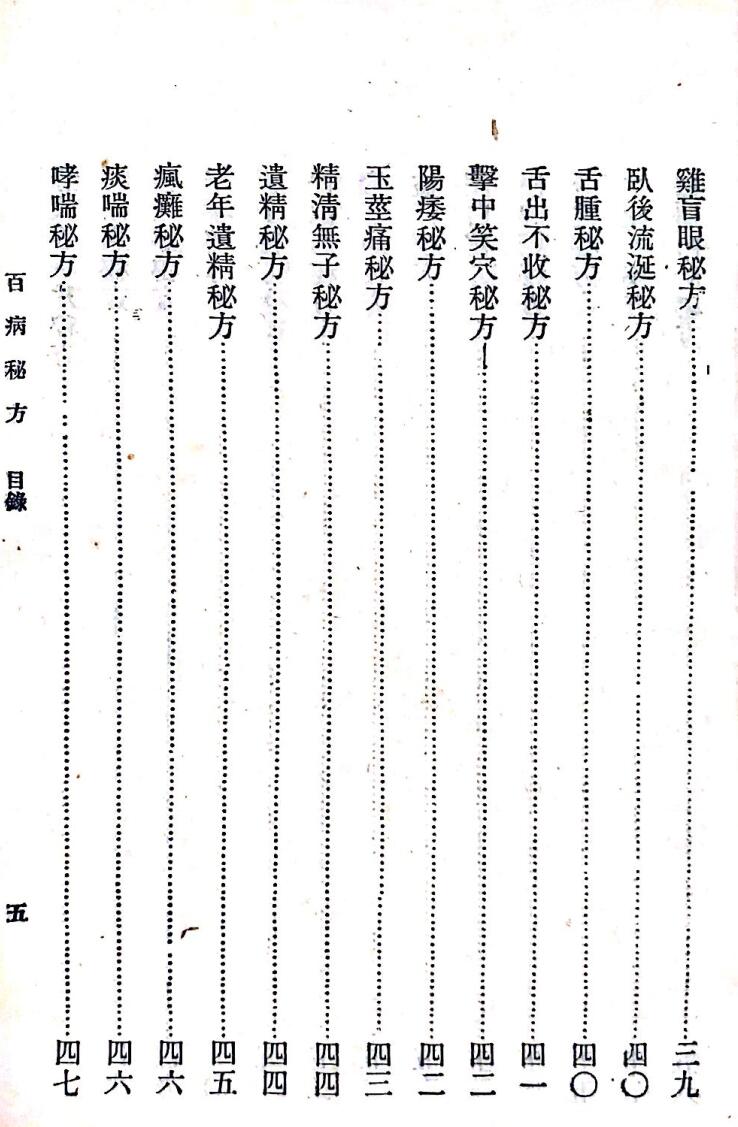 雞盲眼秘方………三九
臥後流涎秘方………四〇
舌腫秘方………四〇
舌出不收秘方………四一
擊中笑穴秘方………四二
陽痿秘方………四二
玉莖痛秘方………四三
精淸無子秘方………四四
遺精秘方………四四
老年遺精秘方………四五
瘋癱秘方………四六
痰喘秘方………四六
哮喘秘方………四七
百病秘方 目錄 五